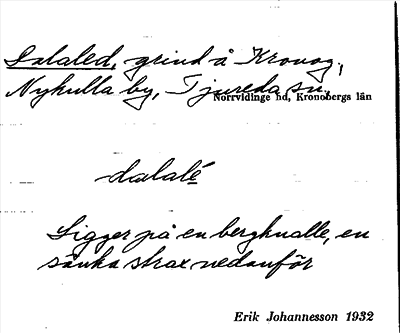 Dalaled, grind å Kronog.,
Nykulla by, Tjureda sn.
Norrvidinge hd, Kronobergs län
dalalé
Ligger på en bergknalle, en
sänka strax nedanför
Erik Johannesson 1932